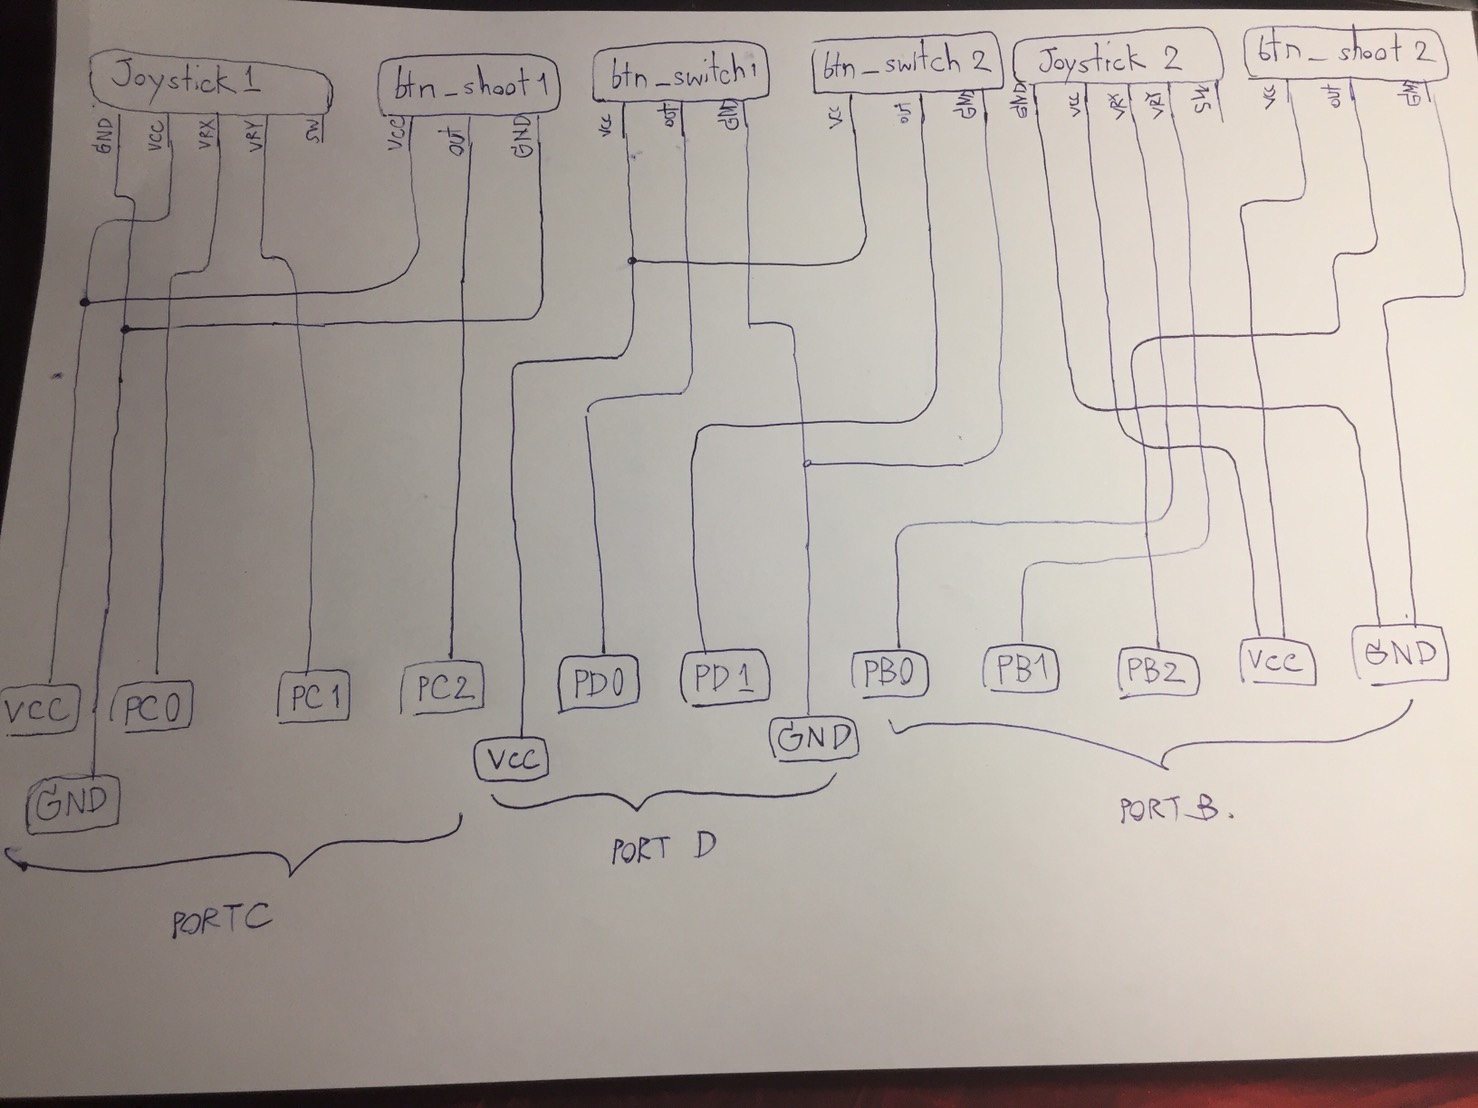 Joystick 1
GND VCC VRX VRY SW
btn_shoot 1
VCC OUT GND
btn_switch 1
VCC OUT GND
btn_switch 2
VCC OUT GND
Joystick 2
GND VCC VRX VRY SW
btn_shoot 2
VCC OUT GND
VCC
GND
PC0
PC1
PC2
PORTC
VCC
PD0
PD1
GND
PORT D
PB0
PB1
PB2
VCC
GND
PORT B.